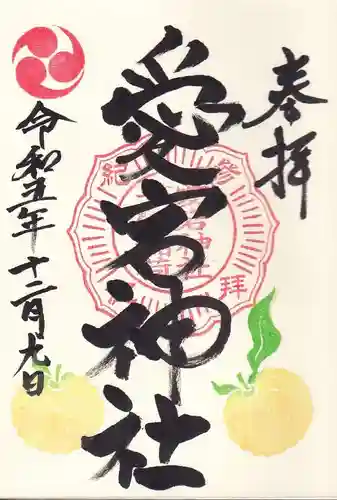 奉拝
愛宕神社
令和五年十二月九日